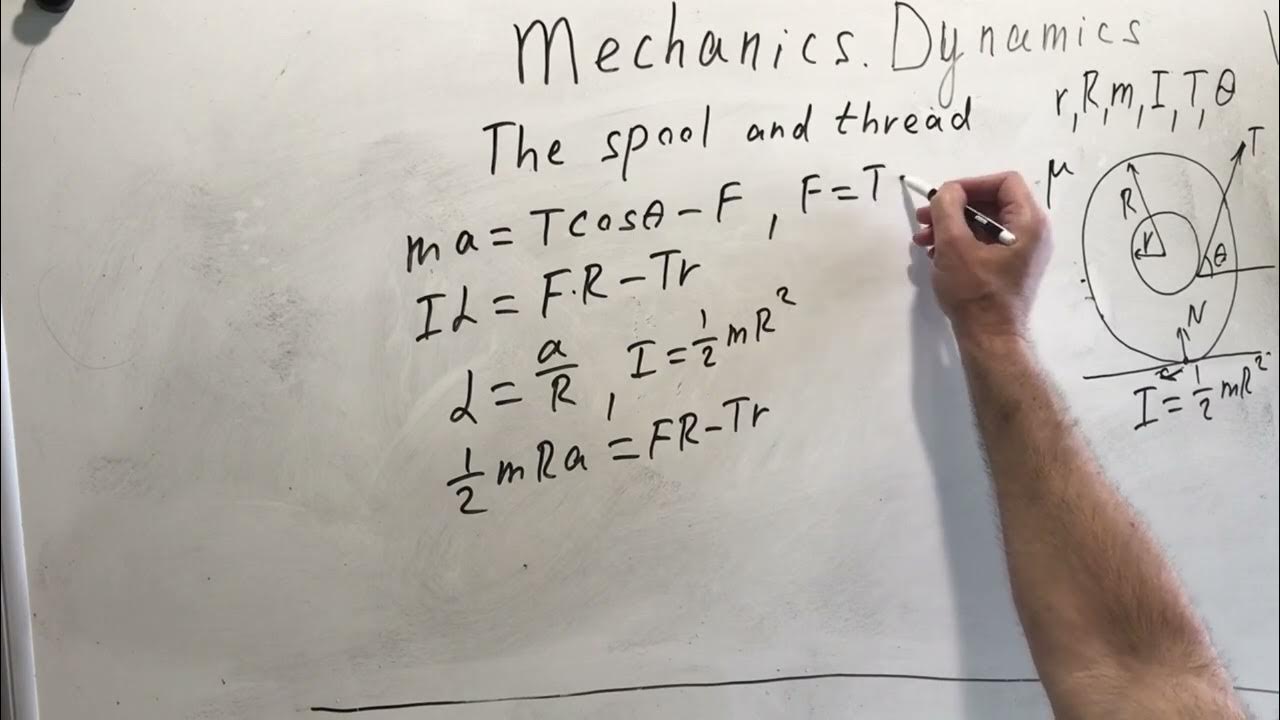 Mechanics. Dynamics
The spool and thread
r, R, m, I, T, θ
ma = Tcosθ - F , F = T
Iα = F·R - Tr
α = a/R , I = 1/2 mR²
1/2 mRa = FR - Tr
μ
T
R
r
θ
N
I = 1/2 mR²